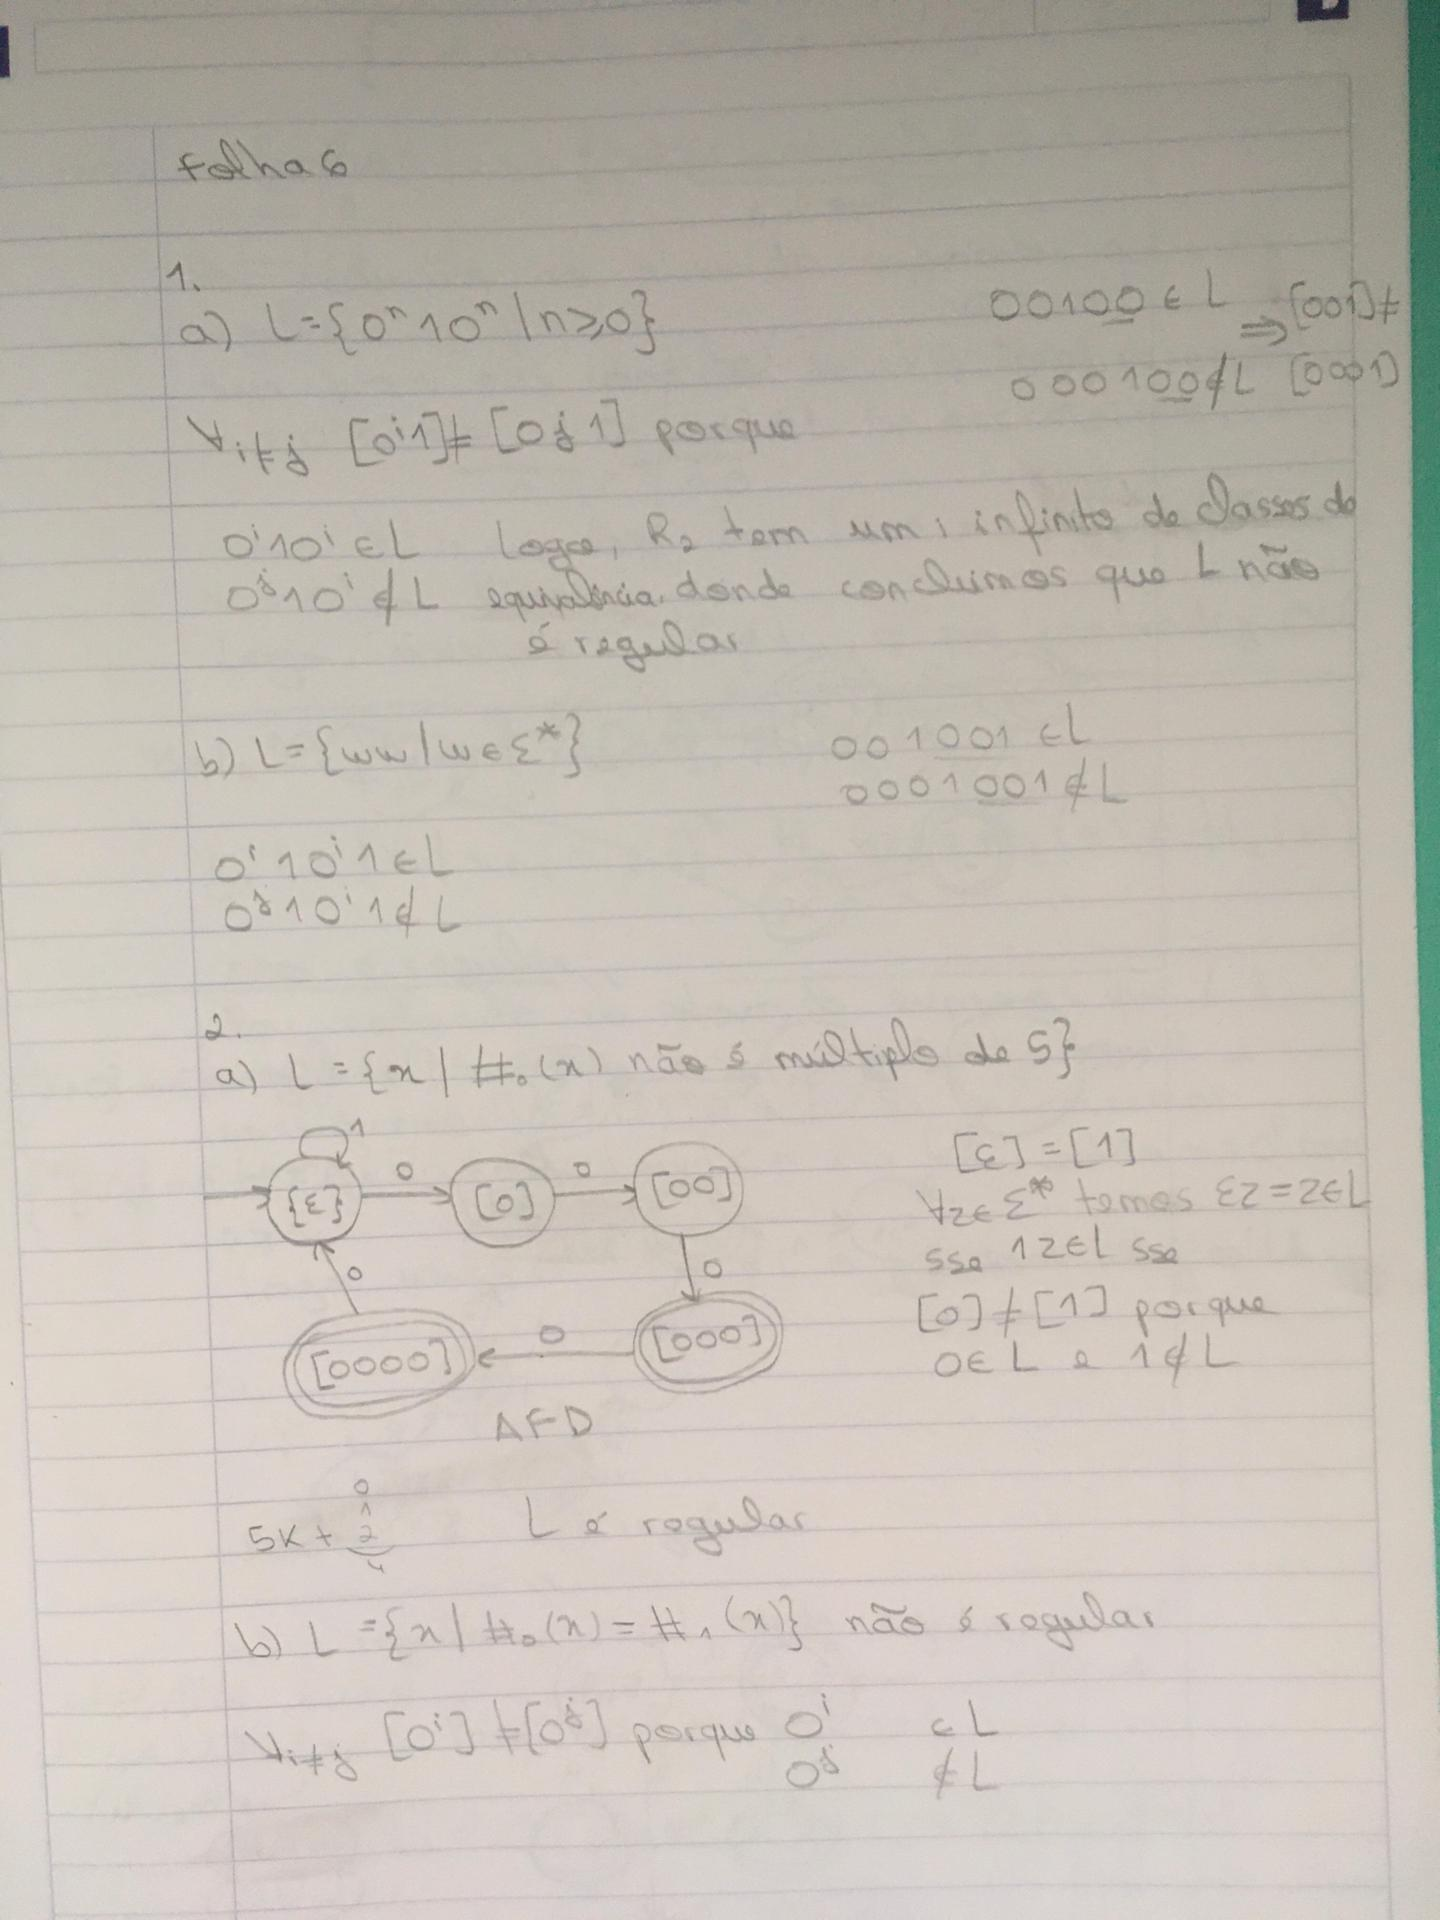 Folha 6
1.
a) L={0ⁿ10ⁿ | n≥0}
00100 ∈ L ⇒ [001]≠
000100 ∉ L [0001]
∀i≠j [0ⁱ1]≠[0ʲ1] porque
0ⁱ10ⁱ ∈ L logo, R₂ tem um i infinito de classes de
0ʲ10ⁱ ∉ L equivalência, donde concluimos que L não
é regular
b) L={ww | w ∈ Σ*}
001001 ∈ L
0001001 ∉ L
0ⁱ10ⁱ1 ∈ L
0ʲ10ⁱ1 ∉ L
2.
a) L={x | #₀(x) não é múltiplo de 5}
1
[ε] 0 [0] 0 [00]
0 0
[0000] 0 [000]
AFD
[ε]=[1]
∀z∈Σ* temos εz=z∈L
sse 1z∈L sse
[0]≠[1] porque
0∈L e 1∉L
0
1
5K + 2
4
L é regular
b) L={x | #₀(x)=#₁(x)} não é regular
∀i≠j [0ⁱ]≠[0ʲ] porque 0ⁱ ∈ L
0ʲ ∉ L